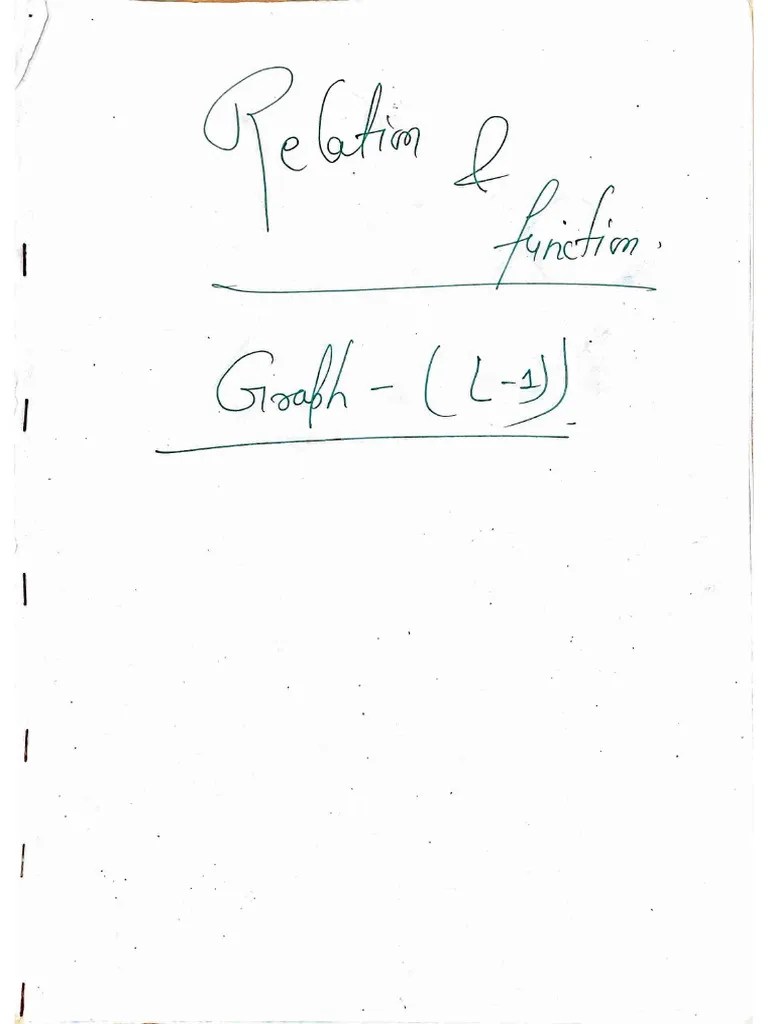 Relation &
function.
Graph - ( L-1))